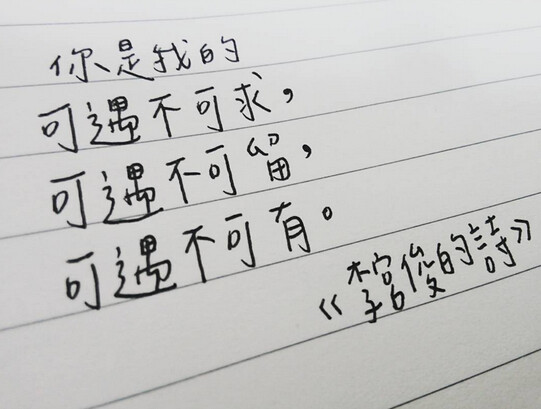 你是我的
可遇不可求，
可遇不可留，
可遇不可有。
《的詩》